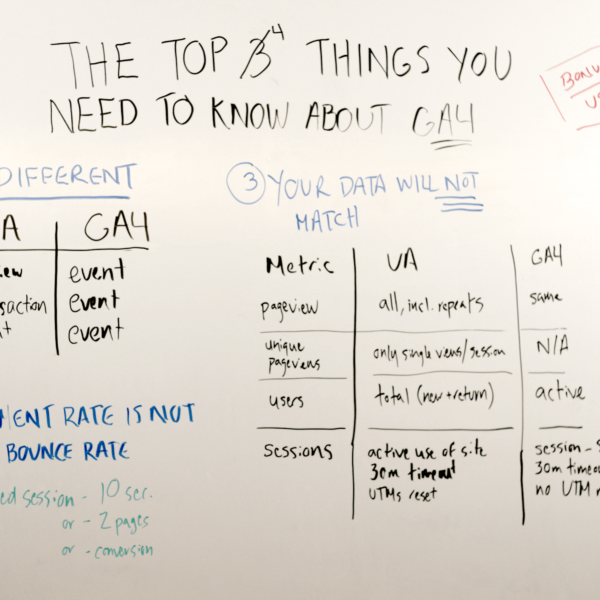 THE TOP 4 THINGS YOU
NEED TO KNOW ABOUT GA4
BONU
DIFFERENT
A GA4
ew event
saction event
t event
ENT RATE IS NOT
BOUNCE RATE
ed session - 10 sec.
or - 2 pages
or - conversion
3 YOUR DATA WILL NOT
MATCH
Metric UA GA4
pageview all, incl. repeats same
unique
pageviews only single views/session N/A
users total (new + return) active
sessions active use of site session - s
30m timeout 30m timeou
UTMs reset no UTM r